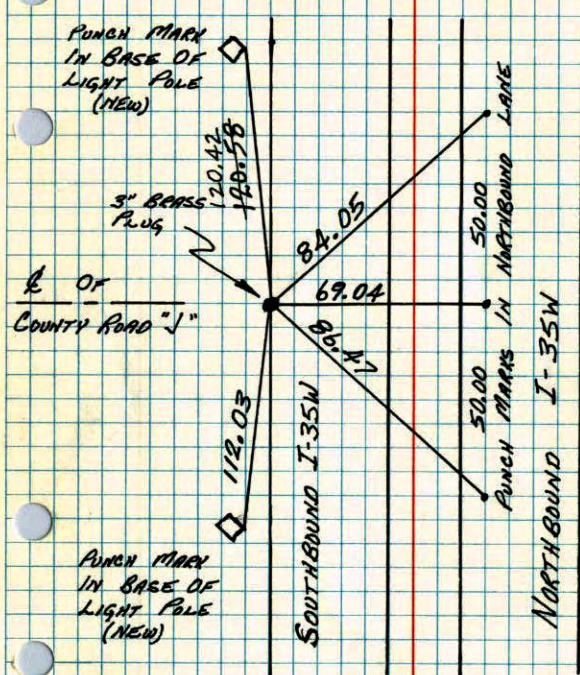 PUNCH MARK
IN BASE OF
LIGHT POLE
(NEW)
120.42
120.58
3" BRASS
PLUG
84.05
69.04
86.47
112.03
℄ OF
COUNTY ROAD "J"
50.00
50.00
PUNCH MARKS IN NORTHBOUND LANE
SOUTHBOUND I-35W
NORTHBOUND I-35W
PUNCH MARK
IN BASE OF
LIGHT POLE
(NEW)